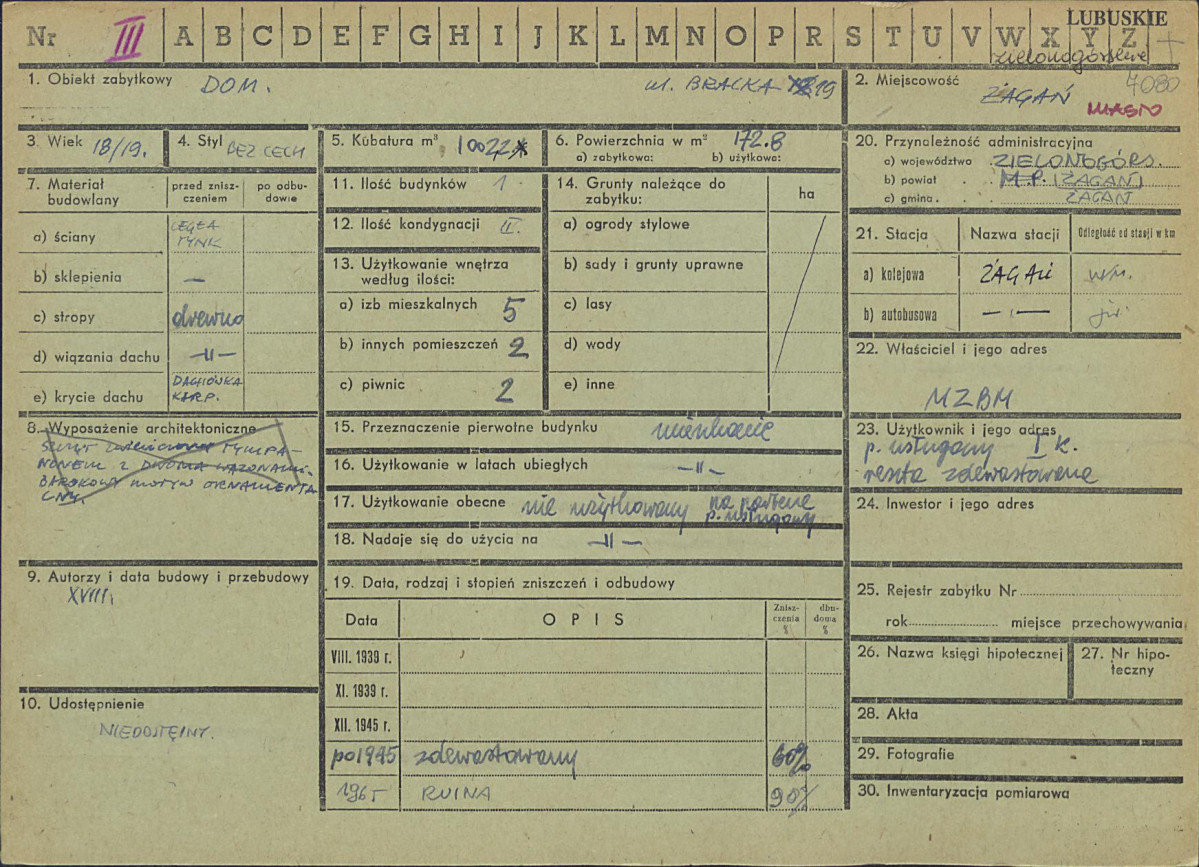 LUBUSKIE
Nr III A B C D E F G H I J K L M N O P R S T U V W X Y Z
zielonogórskie
1. Obiekt zabytkowy DOM. ul. BRACKA 19
2. Miejscowość ŻAGAŃ 4080
MIASTO
3. Wiek 18/19.
4. Styl BEZ CECH
5. Kubatura m³ 10022
6. Powierzchnia w m² 172.8
a) zabytkowa: b) użytkowa:
7. Materiał budowlany
przed zniszczeniem
po odbudowie
a) ściany CEGŁA TYNK
b) sklepienia —
c) stropy drewno
d) wiązania dachu —„—
e) krycie dachu DACHÓWKA KARP.
8. Wyposażenie architektoniczne
SZCZYT zwieńczony TYMPA-
NONEM Z DWOMA WAZONAMI.
BAROKOWY MOTYW ORNAMENTA
LNY.
9. Autorzy i data budowy i przebudowy
XVIII.
10. Udostępnienie
NIEDOSTĘPNY.
11. Ilość budynków 1.
12. Ilość kondygnacji II.
13. Użytkowanie wnętrza
według ilości:
a) izb mieszkalnych 5
b) innych pomieszczeń 2
c) piwnic 2
14. Grunty należące do
zabytku:
ha
a) ogrody stylowe
b) sady i grunty uprawne
c) lasy
d) wody
e) inne
15. Przeznaczenie pierwotne budynku mieszkanie
16. Użytkowanie w latach ubiegłych —„—
17. Użytkowanie obecne nie użytkowany na parterze
p. usługowy
18. Nadaje się do użycia na —„—
19. Data, rodzaj i stopień zniszczeń i odbudowy
Data OPIS Zniszczenia % dbudoma %
VIII. 1939 r.
XI. 1939 r.
XII. 1945 r.
po 1945 zdewastowany 60%
1965 RUINA 90%
20. Przynależność administracyjna
a) województwo ZIELONOGÓRS.
b) powiat M.P. (ŻAGAŃ)
c) gmina ŻAGAŃ
21. Stacja Nazwa stacji Odległość od stacji w km
a) kolejowa ŻAGAŃ wm.
b) autobusowa —„— jw.
22. Właściciel i jego adres
MZBM
23. Użytkownik i jego adres
p. usługowy I k.
reszta zdewastowana
24. Inwestor i jego adres
25. Rejestr zabytku Nr
rok miejsce przechowywania
26. Nazwa księgi hipotecznej
27. Nr hipo-
teczny
28. Akta
29. Fotografie
30. Inwentaryzacja pomiarowa